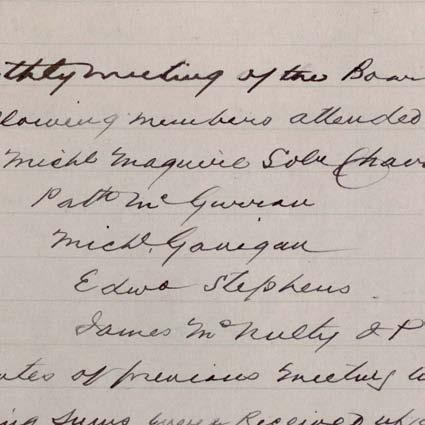 thly meeting of the Boar
llowing members attended
Michl Maguire Solr Chair
Patk McGurran
Michl. Gavigan
Edwd Stephens
James McNulty J P
utes of previous meeting w
ing sums were Received up to